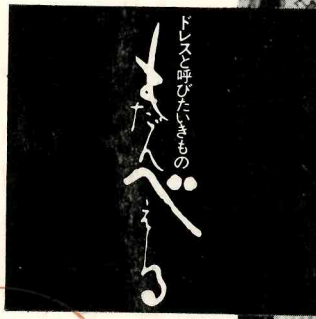 ドレスと呼びたいきもの
もだんべえる